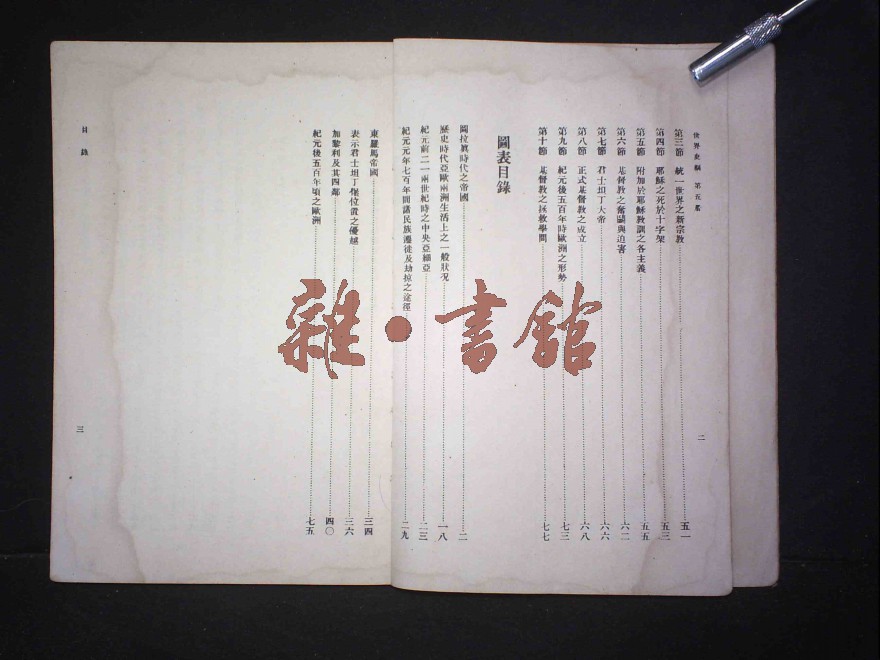 世界史綱 第五卷
二
第三節 統一世界之新宗教 五一
第四節 耶穌之死於十字架 五三
第五節 附加於耶穌教訓之各主義 五五
第六節 基督教之奮鬭與迫害 六二
第七節 君士坦丁大帝 六六
第八節 正式基督教之成立 六八
第九節 紀元後五百年時歐洲之形勢 七三
第十節 基督教之拯救學問 七七
圖表目錄
圖拉真時代之帝國 二
歷史時代亞歐兩洲生活上之一般狀況 一八
紀元前二一兩世紀時之中央亞細亞 二三
紀元元年七百年間諸民族遷徙及劫掠之途徑 二九
東羅馬帝國 三四
表示君士坦丁堡位置之優越 三六
加黎利及其四鄰 四〇
紀元後五百年頃之歐洲 七五
目錄
三
雜·書館